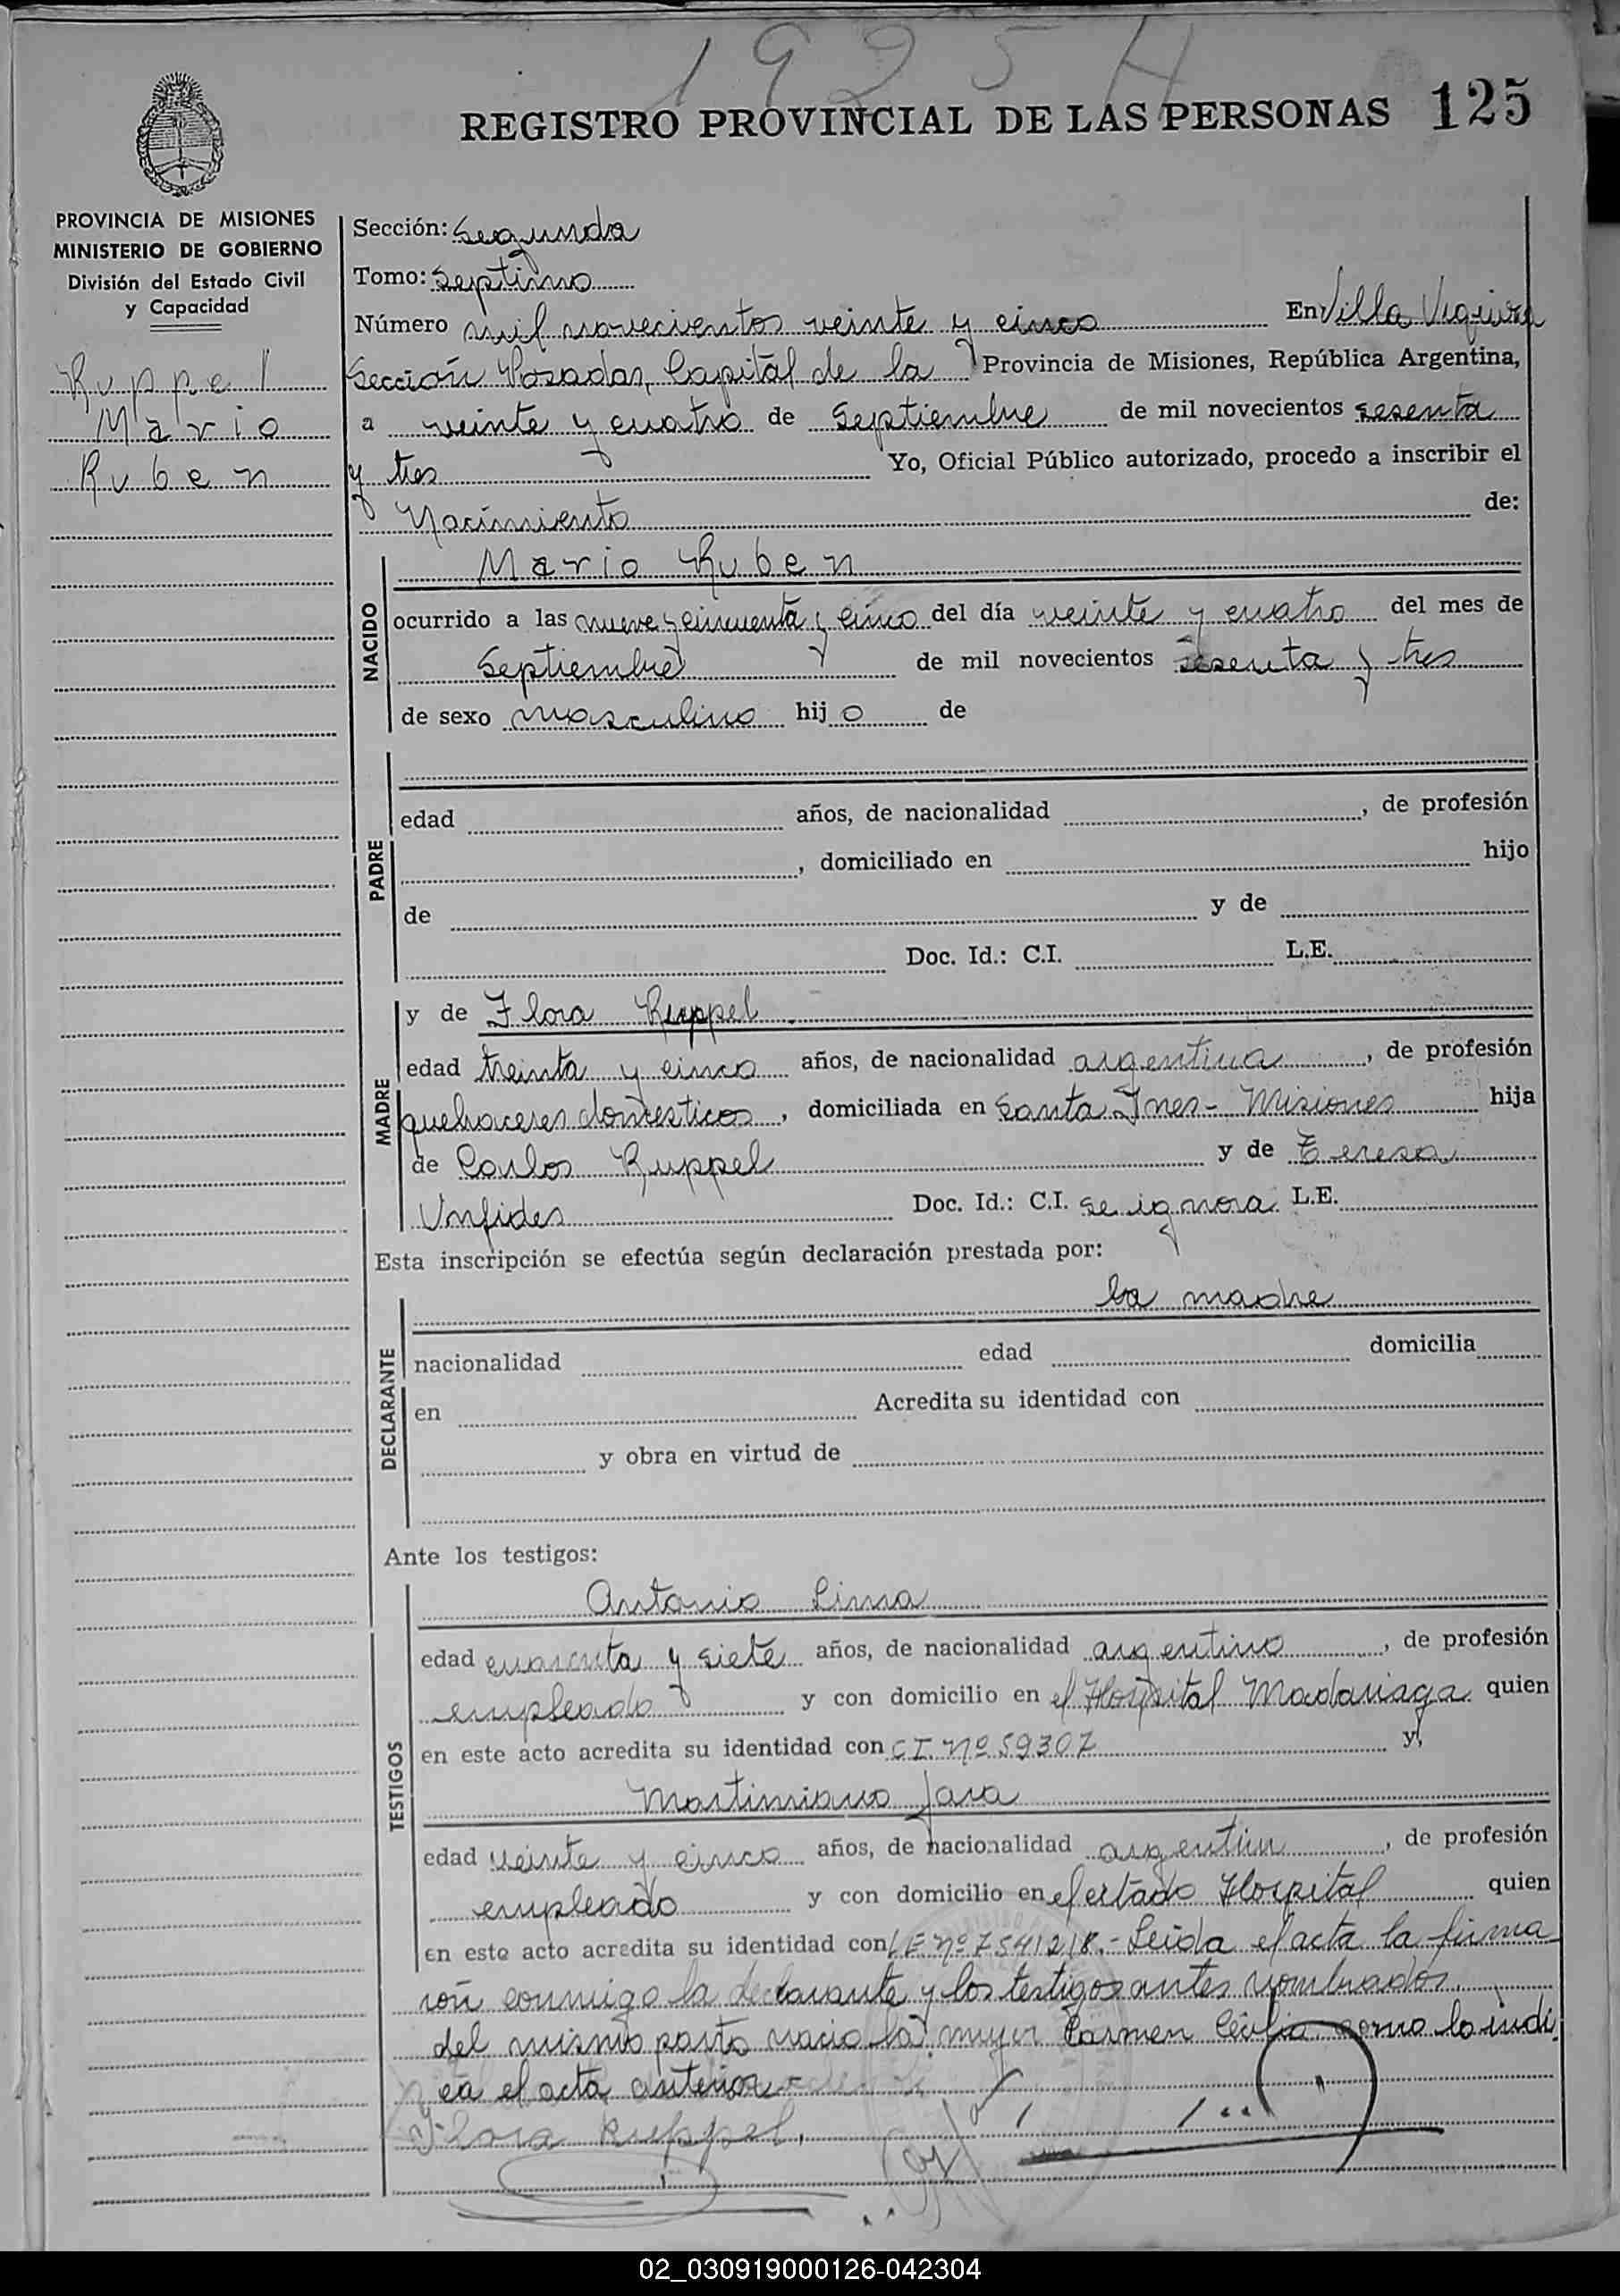 1925 H
REGISTRO PROVINCIAL DE LAS PERSONAS 125
PROVINCIA DE MISIONES
MINISTERIO DE GOBIERNO
División del Estado Civil
y Capacidad
Ruppel
Mario
Ruben
Sección: Segunda
Tomo: Septimo
Número mil novecientos veinte y cinco En Villa Urquiza
Sección Posadas, Capital de la Provincia de Misiones, República Argentina,
a veinte y cuatro de Septiembre de mil novecientos sesenta
y tres Yo, Oficial Público autorizado, procedo a inscribir el
Nacimiento de:
NACIDO
Mario Ruben
ocurrido a las nueve y cincuenta y cinco del día veinte y cuatro del mes de
Septiembre de mil novecientos sesenta y tres
de sexo masculino hijo de
PADRE
edad años, de nacionalidad , de profesión
, domiciliado en hijo
de y de
Doc. Id.: C.I. L.E.
MADRE
y de Flora Ruppel
edad treinta y cinco años, de nacionalidad argentina , de profesión
quehaceres domesticos , domiciliada en Santa Ines - Misiones hija
de Carlos Ruppel y de Teresa
Unfides Doc. Id.: C.I. se ignora L.E.
Esta inscripción se efectúa según declaración prestada por:
DECLARANTE
la madre
nacionalidad edad domicilia
en Acredita su identidad con
y obra en virtud de
Ante los testigos:
TESTIGOS
Antonio Lima
edad cuarenta y siete años, de nacionalidad argentino , de profesión
empleado y con domicilio en el Hospital Madariaga quien
en este acto acredita su identidad con C.I. Nº 59307 y,
Martimiano Jara
edad veinte y cinco años, de nacionalidad argentin , de profesión
empleado y con domicilio en el citado Hospital quien
en este acto acredita su identidad con L.E Nº 7541218.- Leida el acta la firma
ron conmigo la declarante y los testigos antes nombrados.
del mismo parto nacio la mujer Carmen Cecilia como lo indi
ca el acta anterior -
Flora Ruppel.
02_030919000126-042304